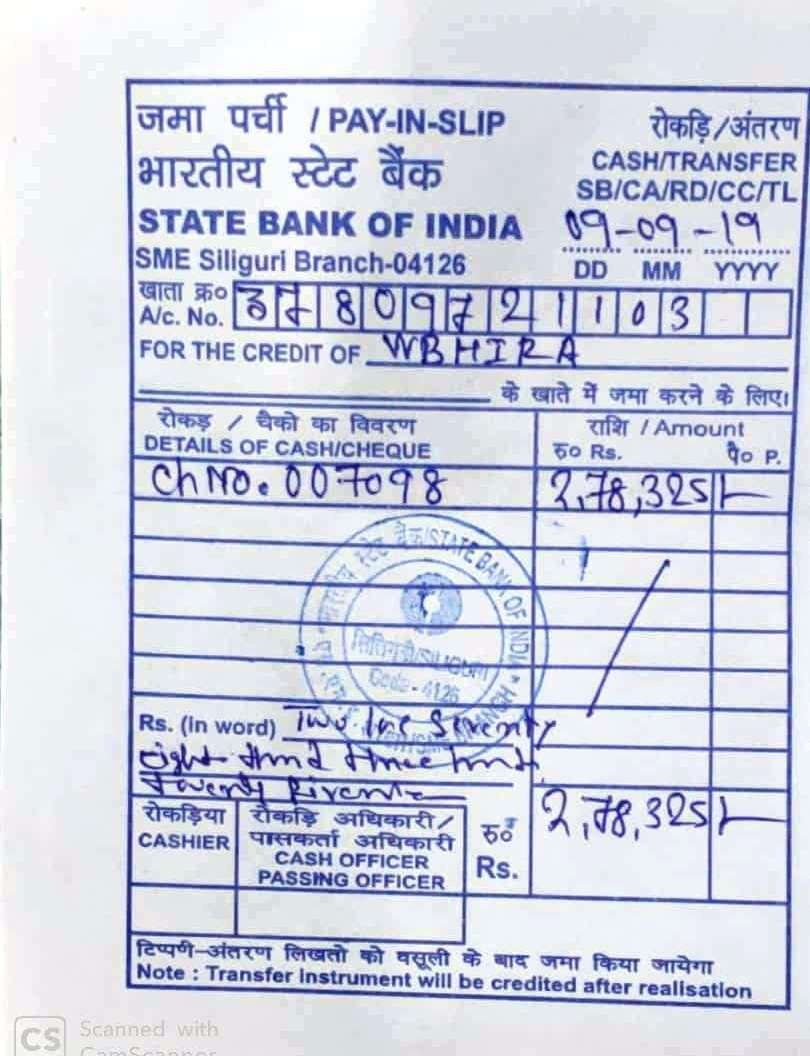 जमा पर्ची / PAY-IN-SLIP
रोकड़ि/अंतरण
भारतीय स्टेट बैंक
CASH/TRANSFER
SB/CA/RD/CC/TL
STATE BANK OF INDIA
09-09-19
SME Siliguri Branch-04126
DD MM YYYY
खाता क्र०
A/c. No. 37809721103
FOR THE CREDIT OF WBHIRA
के खाते में जमा करने के लिए।
रोकड़ / चैको का विवरण
DETAILS OF CASH/CHEQUE
राशि / Amount
रु० Rs. पै० P.
Ch No. 007098 2,78,325/-
स्टेट बैंक/STATE BANK OF INDIA
सिलिगुड़ी/SILIGURI
Code - 4126
Rs. (in word) Two lac Seventy
eight thnd three hnd
Twenty five
2,78,325/-
रोकड़िया
CASHIER
रोकड़ि अधिकारी/
पासकर्ता अधिकारी
CASH OFFICER
PASSING OFFICER
रु०
Rs.
टिप्पणी-अंतरण लिखतो को वसूली के बाद जमा किया जायेगा
Note : Transfer instrument will be credited after realisation
CS Scanned with
CamScanner